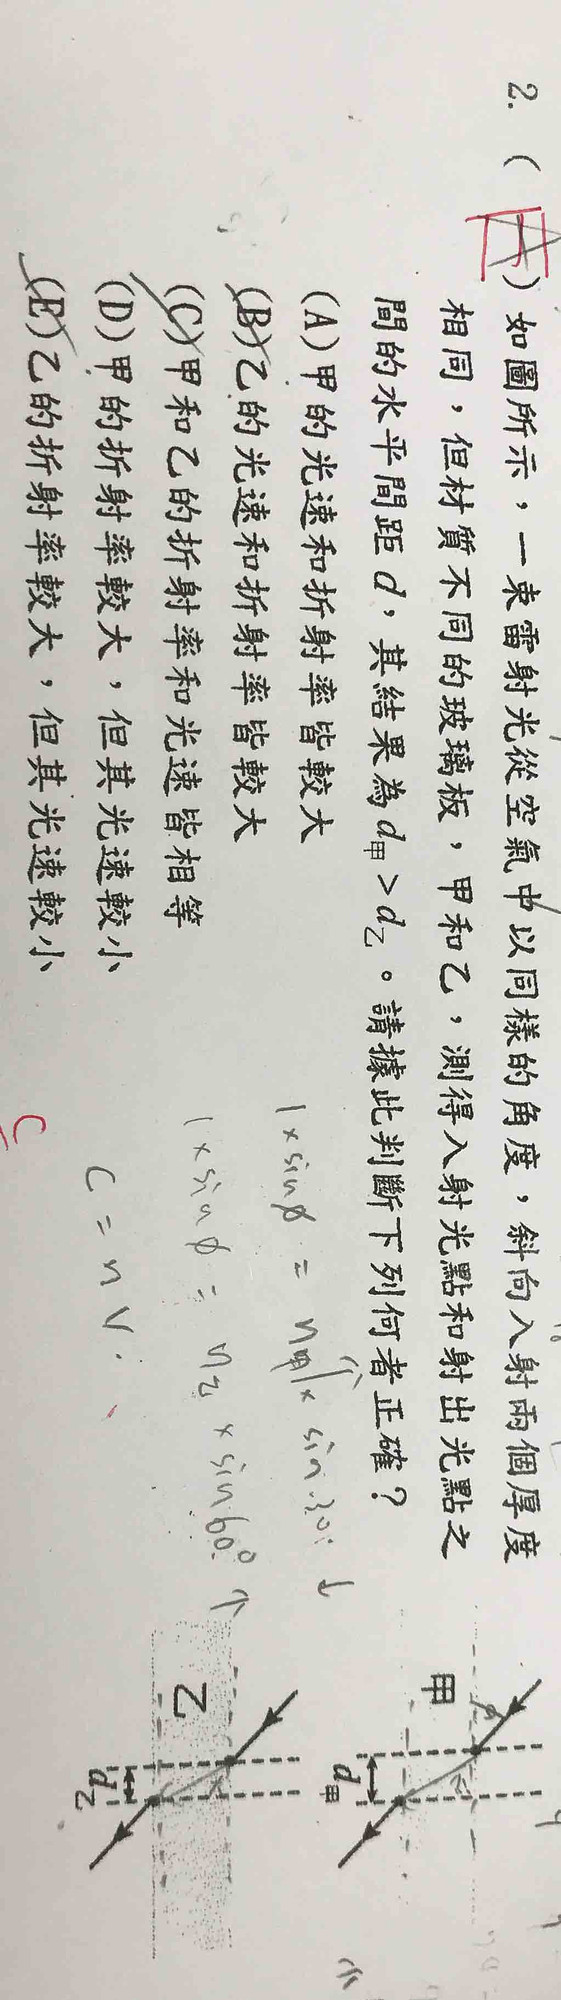 2. ( A )如圖所示,一束雷射光從空氣中以同樣的角度,斜向入射兩個厚度
相同,但材質不同的玻璃板,甲和乙,測得入射光點和射出光點之
間的水平間距d,其結果為d甲>d乙。請據此判斷下列何者正確?
(A)甲的光速和折射率皆較大
(B)乙的光速和折射率皆較大
(C)甲和乙的折射率和光速皆相等
(D)甲的折射率較大,但其光速較小
(E)乙的折射率較大,但其光速較小
1×sinθ = n甲×sin30° ↓
1×sinθ = n乙×sin60° ↑
C = nV
甲
d甲
乙
d乙